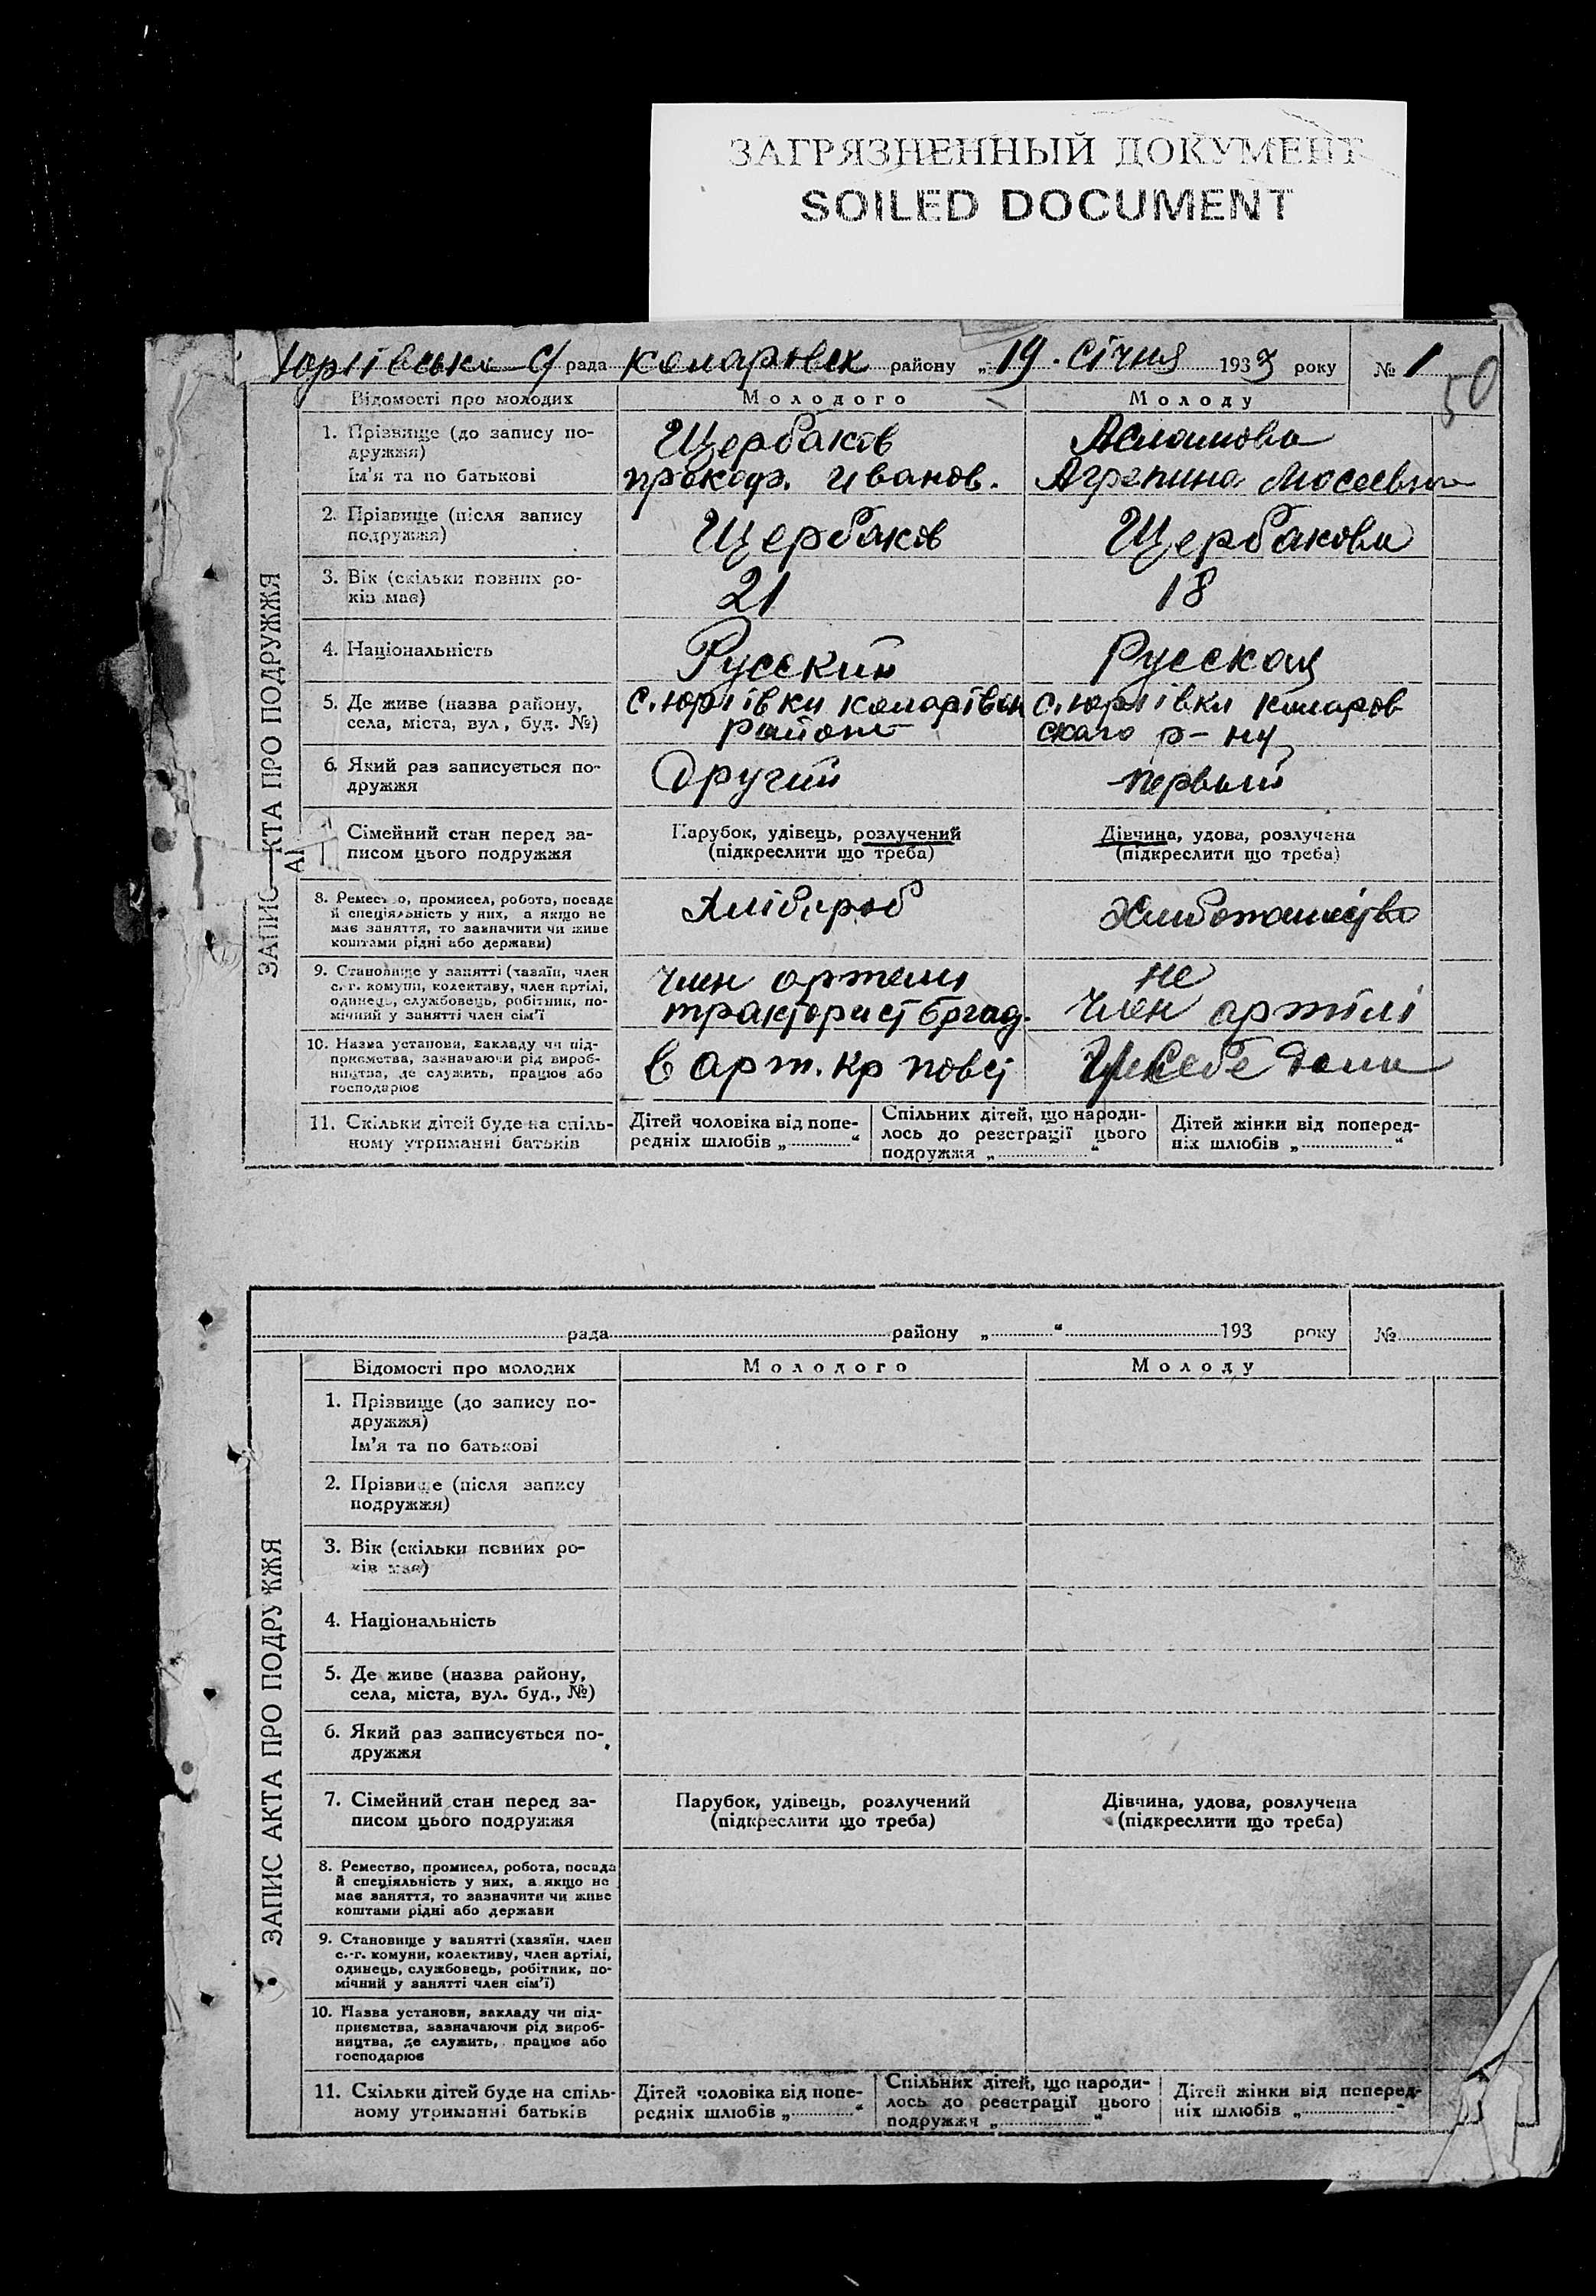 ЗАГРЯЗНЕННЫЙ ДОКУМЕНТ
SOILED DOCUMENT
Юрʼївська с/рада комарівск району „19. січня 1933 року № 1
50
ЗАПИС АКТА ПРО ПОДРУЖЖЯ
Відомості про молодих Молодого Молоду
1. Прізвище (до запису по-
дружжя)
Ім'я та по батькові
Щербаков
прокоф. иванов.
Агрепина Мосеевна
2. Прізвище (після запису
подружжя)
Щербаков Щербакова
3. Вік (скільки повних ро-
ків має)
21 18
4. Національність
Русский Русская
5. Де живе (назва району,
села, міста, вул, буд. №)
район
р-ну
6. Який раз записується по-
дружжя
Другий первый
Сімейний стан перед за-
писом цього подружжя
Парубок, удівець, розлучений
(підкреслити що треба)
Дівчина, удова, розлучена
(підкреслити що треба)
8. Ремество, промисел, робота, посада
й спеціяльність у них, а якщо не
має заняття, то зазначити чи живе
коштами рідні або держави)
Хлібороб
9. Становище у занятті (хазяїн, член
с.-г. комуни, колективу, член артілі,
одинець, службовець, робітник, по-
мічний у занятті член сім'ї
член артели
тракторист бргад.
не
член артілі
10. Назва установи, закладу чи під-
приємства, зазначаючи рід вироб-
ництва, де служить, працює або
господарює
в арт. кр повст
у себе дома
11. Скільки дітей буде на спіль-
ному утриманні батьків
Дітей чоловіка від попе-
редніх шлюбів „............“
Спільних дітей, що народи-
лось до реєстрації цього
подружжя „............“
Дітей жінки від поперед-
ніх шлюбів „............“
рада району „............“ 193 року №
ЗАПИС АКТА ПРО ПОДРУЖЖЯ
Відомості про молодих Молодого Молоду
1. Прізвище (до запису по-
дружжя)
Ім'я та по батькові
2. Прізвище (після запису
подружжя)
3. Вік (скільки повних ро-
ків має)
4. Національність
5. Де живе (назва району,
села, міста, вул. буд., №)
6. Який раз записується по-
дружжя
7. Сімейний стан перед за-
писом цього подружжя
Парубок, удівець, розлучений
(підкреслити що треба)
Дівчина, удова, розлучена
(підкреслити що треба)
8. Ремество, промисел, робота, посада
й спеціяльність у них, а якщо не
має заняття, то зазначити чи живе
коштами рідні або держави
9. Становище у занятті (хазяїн, член
с.-г. комуни, колективу, член артілі,
одинець, службовець, робітник, по-
мічний у занятті член сім'ї)
10. Назва установи, закладу чи під-
приємства, зазначаючи рід вироб-
ництва, де служить, працює або
господарює
11. Скільки дітей буде на спіль-
ному утриманні батьків
Дітей чоловіка від попе-
редніх шлюбів „............“
Спільних дітей, що народи-
лось до реєстрації цього
подружжя „............“
Дітей жінки від поперед-
ніх шлюбів „............“